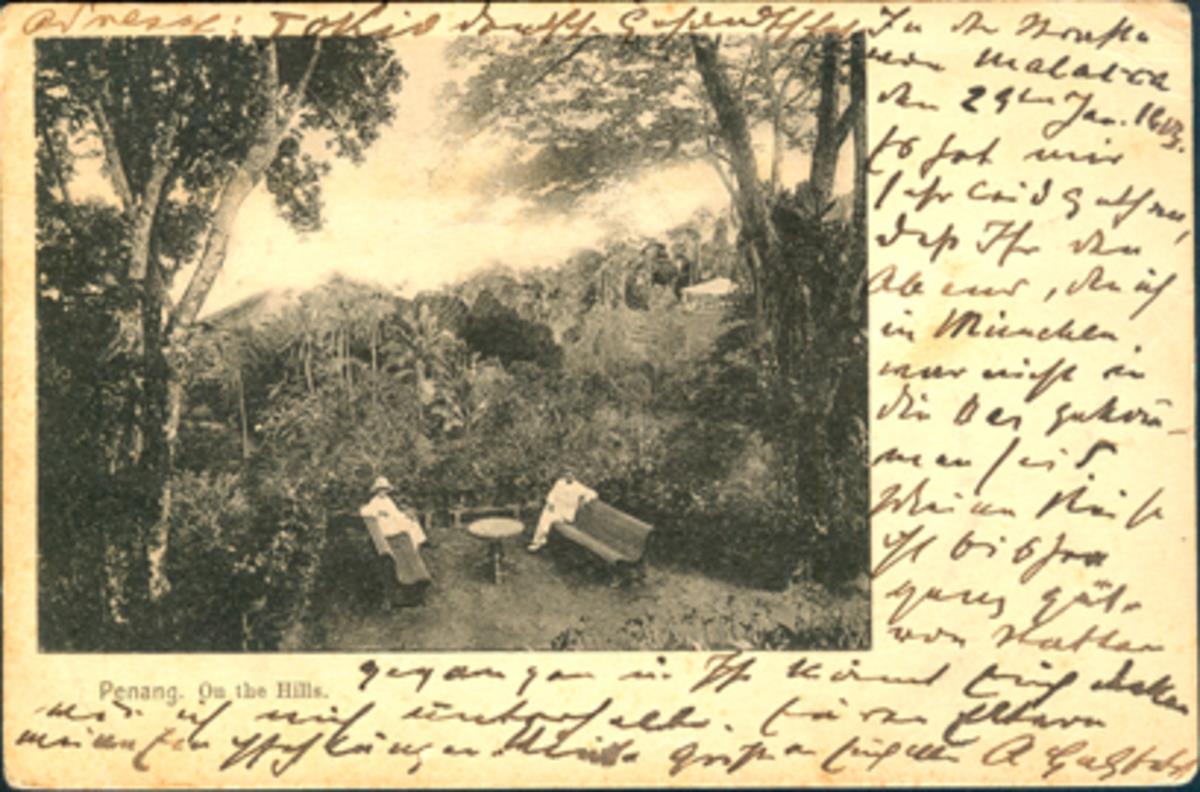 Adresse: Tokio deutsche Gesandtschaft
In der Strasse
von Malacca
den 29ten Jan.
Es hat mir
sehr leid gethan,
daß Ihr den
Abend, den ich
in München
war nicht in
die Bar gekom-
men seid.
Meine Reise
ist bisher
ganz gut
von statten
gegangen u. Ihr könnt Euch denken
wie ich mich unterhalte. Euren Eltern
meine Empfehlungen. grüßen
Penang. On the Hills.